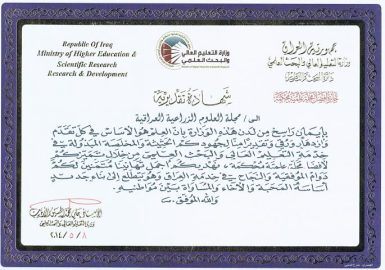 Republic Of Iraq
Ministry of Higher Education &
Scientific Research
Research & Development
وزارة التعليم العالي
والبحث العلمي
جمهورية العراق
وزارة التعليم العالي والبحث العلمي
دائرة البحث والتطوير
شهادة تقديرية
الى / مجلة العلوم الزراعية العراقية
بإيمان راسخ من لدن هذه الوزارة بان العلم هو الأساس في كل تقدم
وازدهار ورقي وتقديرا منا لجهودكم الحثيثة والمخلصة المبذولة في
خدمة التعليم العالي والبحث العلمي من خلال تميزكم
دوام الموفقية والنجاح في خدمة العراق وهو يتطلع الى بناء جديد
أساسه المحبة والأخاء والمساواة بين مواطنيه
والله الموفق
٢٠١٤/٥/٨